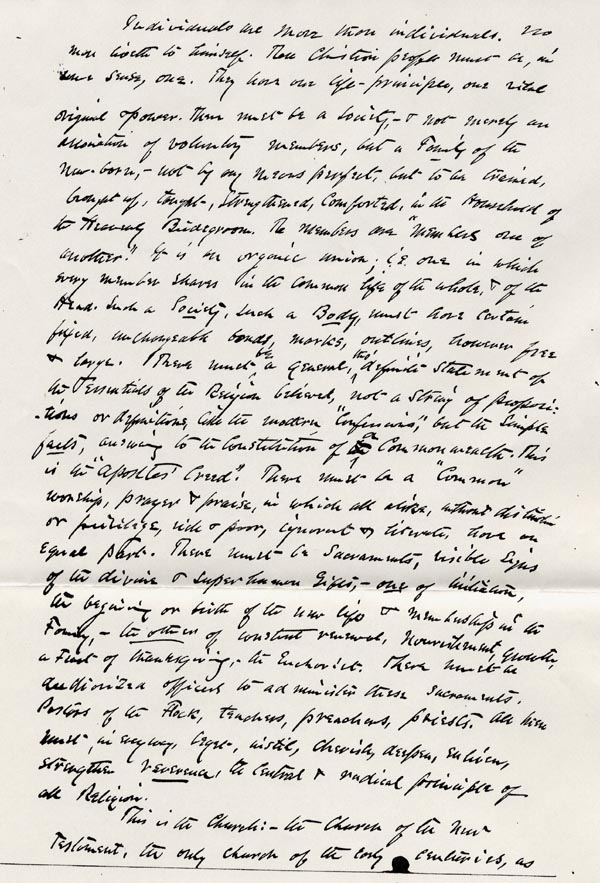 Individuals are more than individuals. No
man liveth to himself. Then Christian people must be, in
some sense, one. They have one life-principle, one vital
original power. There must be a Society, - & not merely an
association of voluntary members, but a Family of the
new-born, - not by any means perfect, but to be trained,
brought up, taught, strengthened, Comforted, in the Household of
the Heavenly Bridegroom. The members are "members one of
another." It is an organic union; i.e. one in which
every member shares in the common life of the whole, & of the
Head. Such a Society, such a Body, must have certain
fixed, unchangeable bonds, marks, outlines, however free
& large. There must be a general, tho' definite statement of
the essentials of the Religion believed, not a string of proposi-
-tions or definitions, like the modern "Confessions," but the simple
facts, answering to the Constitution of a Commonwealth. This
is the "Apostles' Creed". There must be a "Common"
worship, prayer & praise, in which all alike, without distinction
or privilege, rich & poor, ignorant & literate, have an
equal part. There must be Sacraments, visible Signs
of the divine & superhuman Gifts, - one of Initiation,
the begining or birth of the new life & membership in the
Family, - the other of constant renewal, Nourishment, growth,
a Feast of thanksgiving, - the Eucharist. There must be
authorized officers to administer these Sacraments.
Pastors of the Flock, teachers, preachers, priests. All been
must, in every way, beget, instil, cherish, deepen, enliven,
strengthen reverence, the central & radical principle of
all Religion.
This is the Church: - the Church of the New
Testament, the only church of the early centuries, as